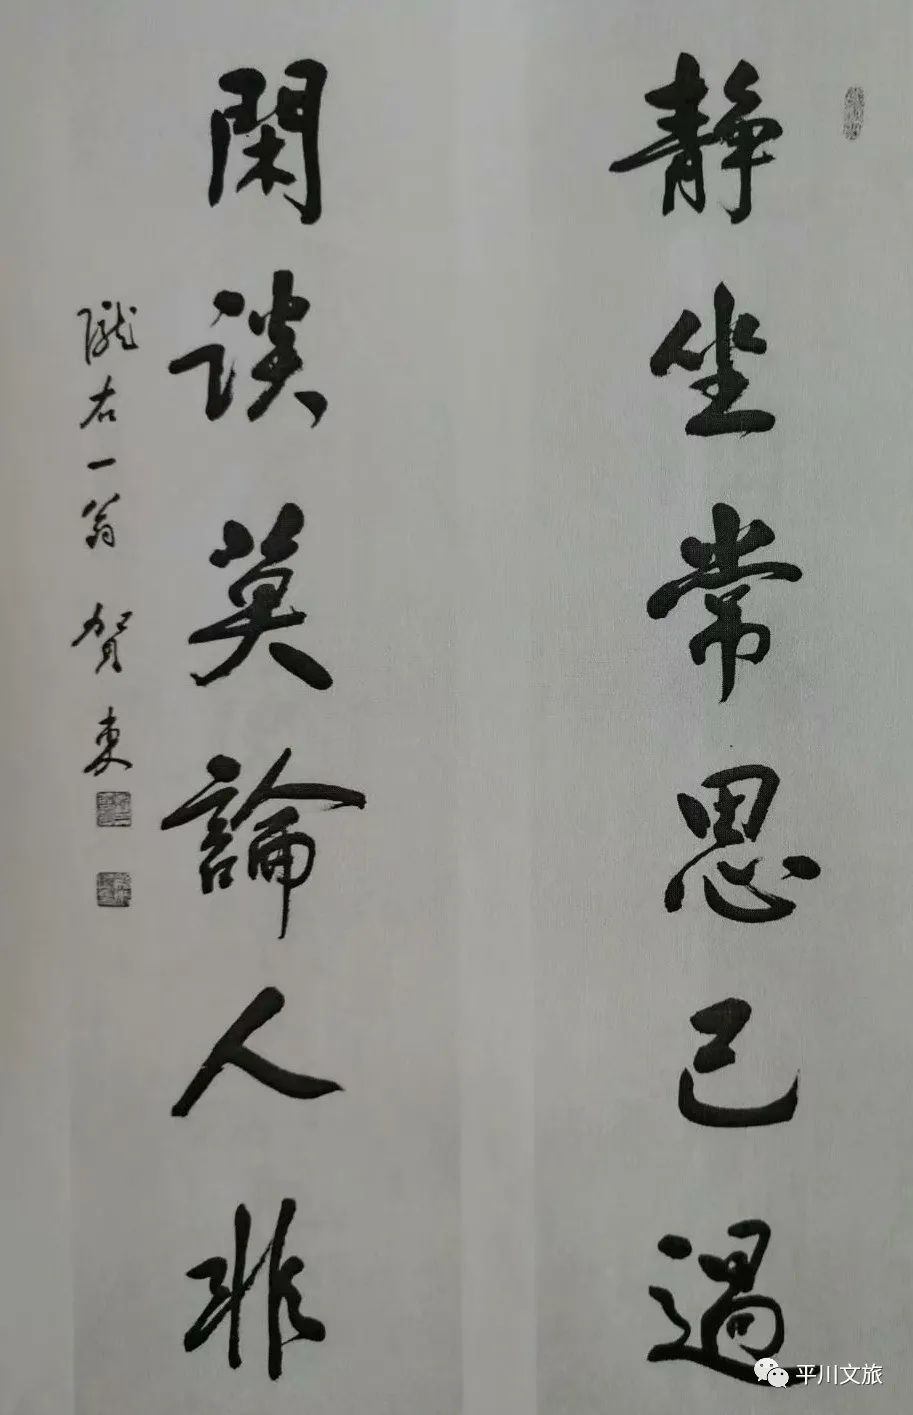 靜坐常思己過
閑談莫論人非
隴右一翁 賀東
平川文旅